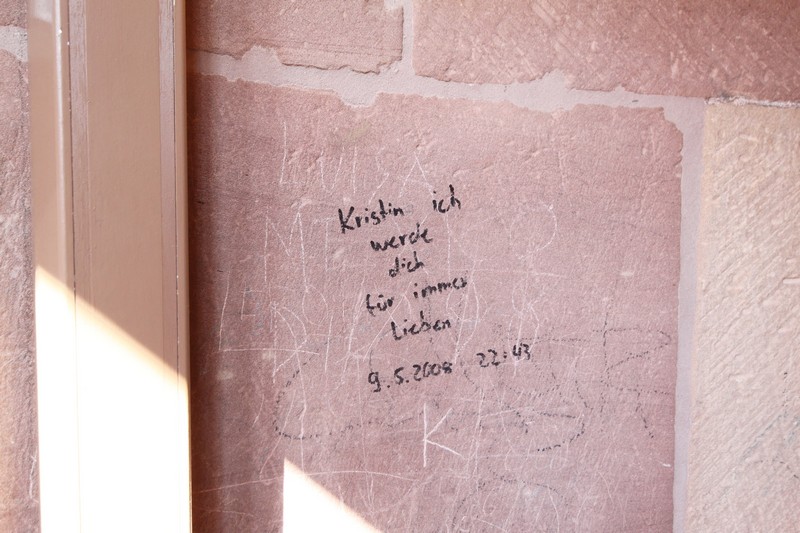 Kristin ich
werde
dich
für immer
Lieben
9.5.2008 22:43
K